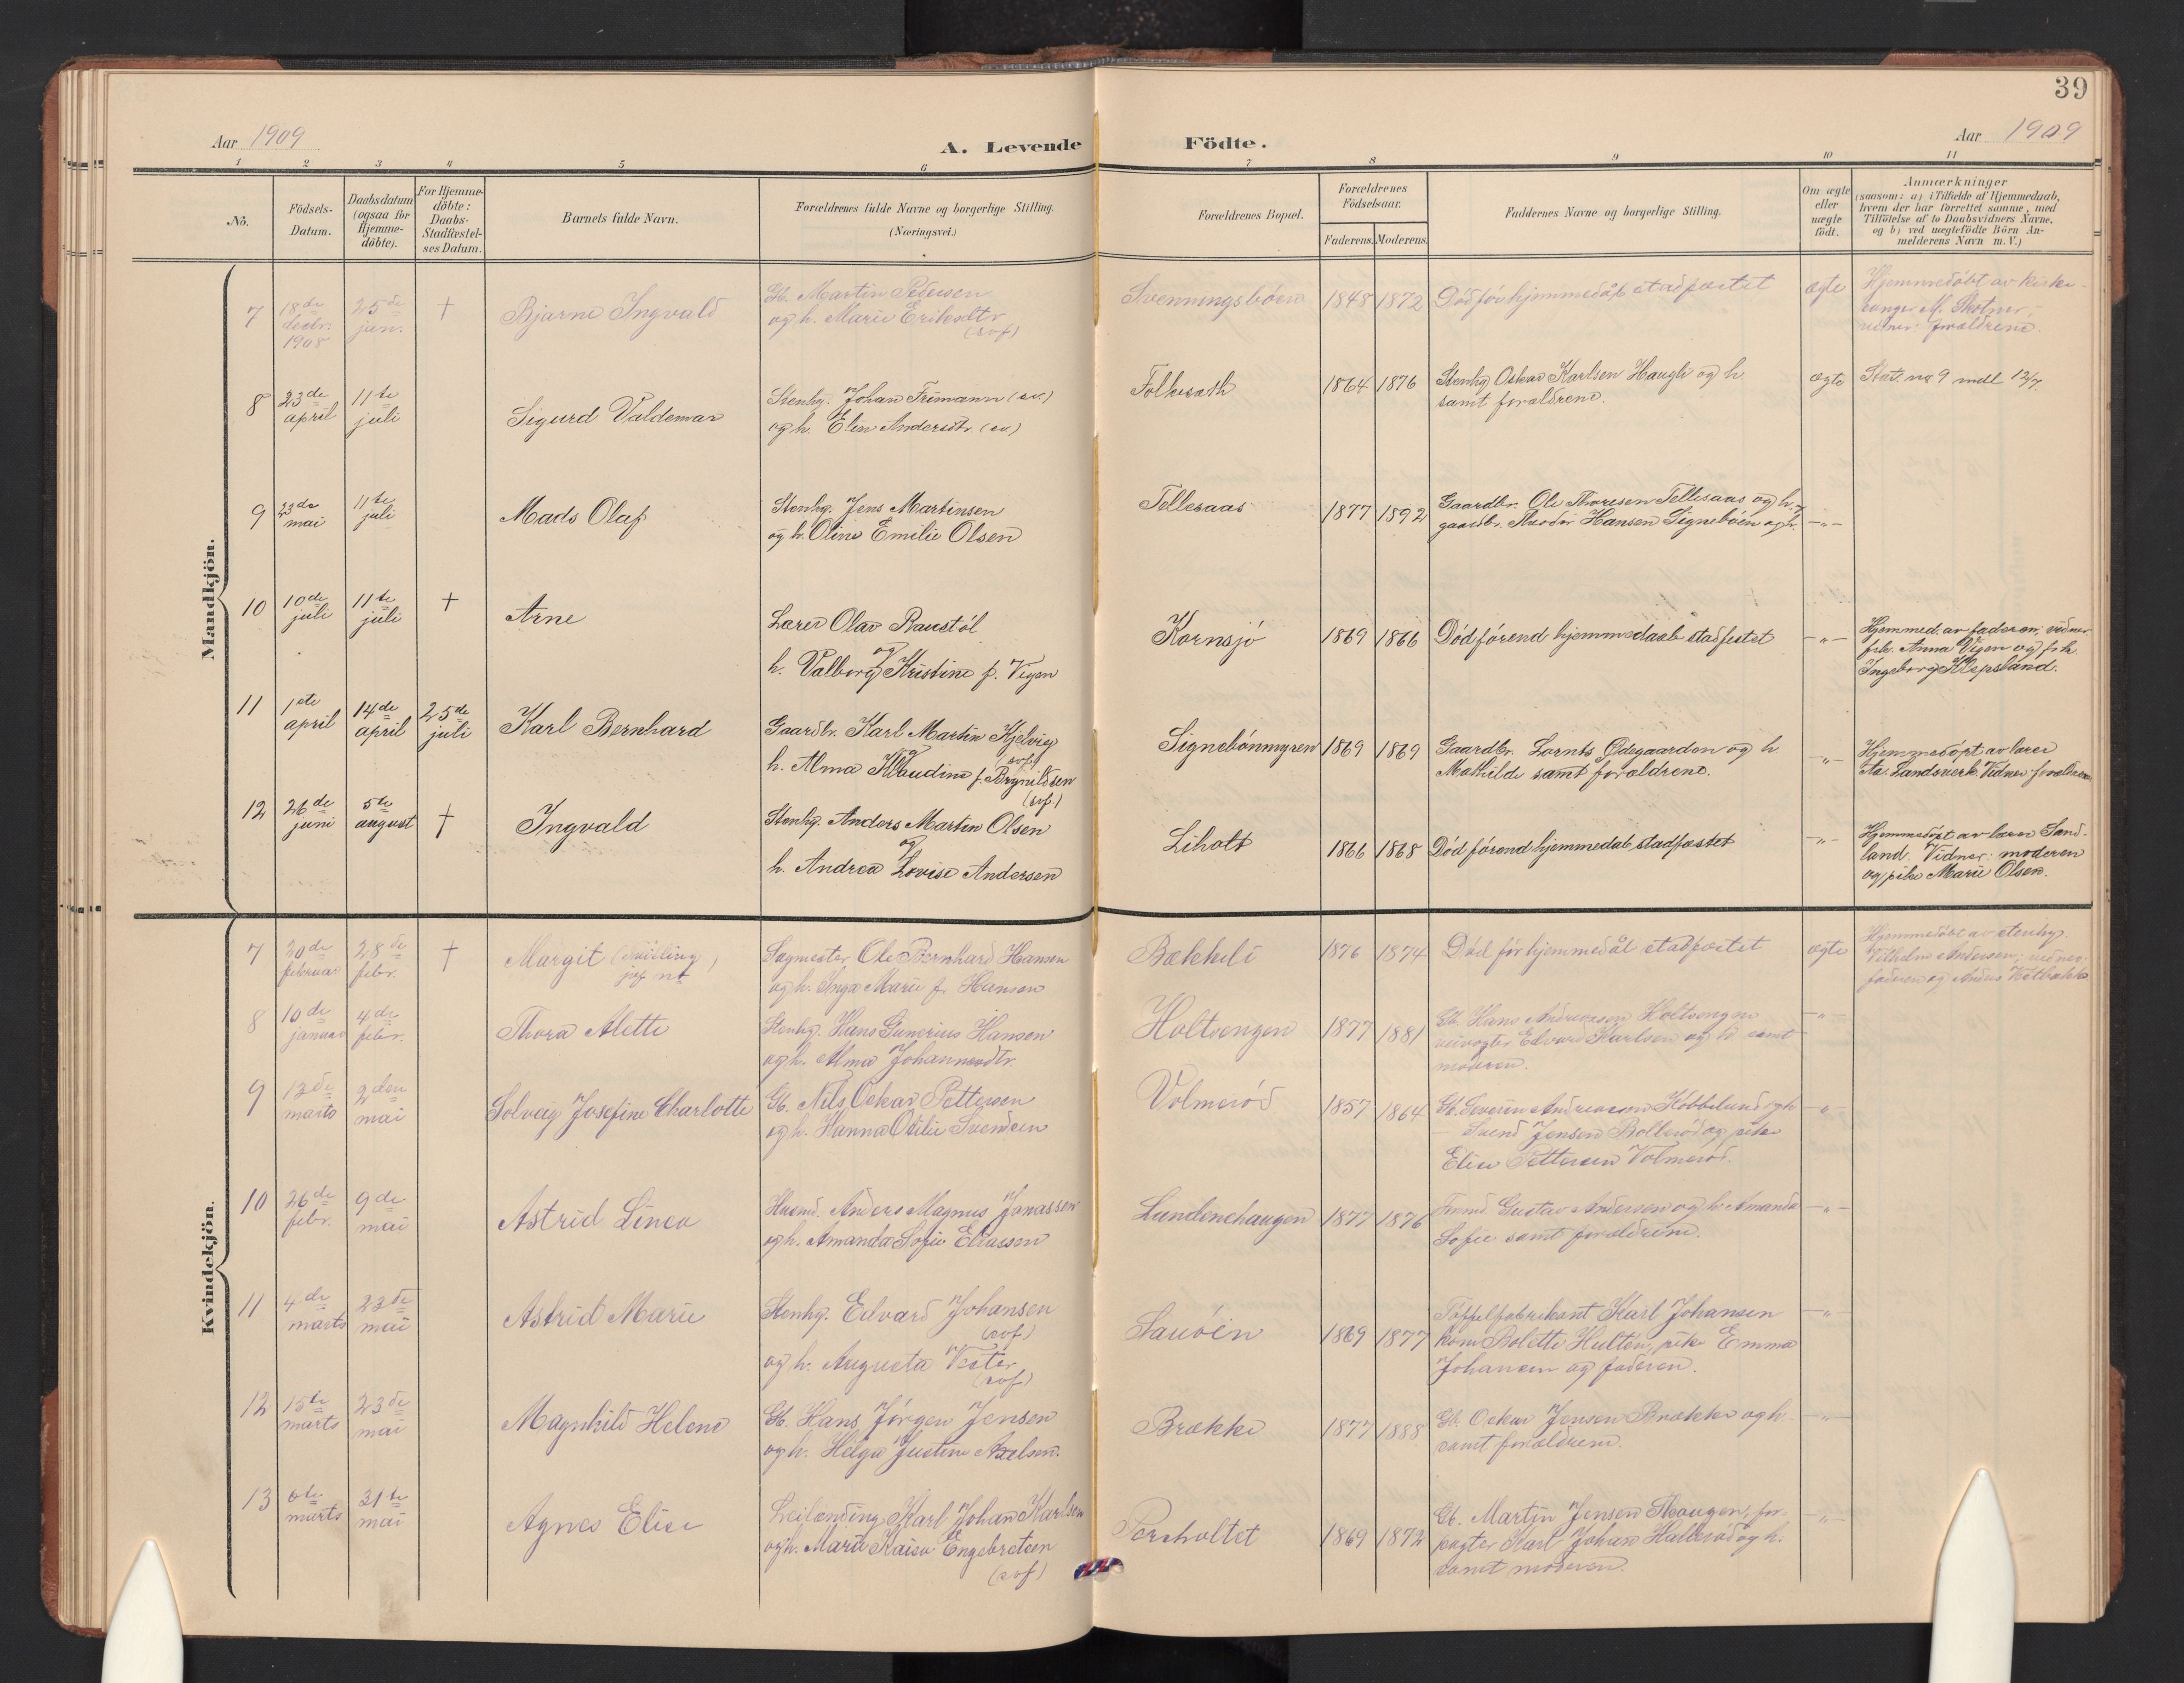 39
Aar 1909
A. Levende Födte.
Aar 1909
1 2 3 4 5 6 7 8 9 10 11
No.
Födsels-
Datum.
Daabsdatum
(ogsaa for
Hjemme-
döbte).
For Hjemme-
döbte:
Daabs-
Stadfæstel-
ses Datum.
Barnets fulde Navn.
Forældrenes fulde Navne og borgerlige Stilling.
(Næringsvei.)
Forældrenes Bopæl.
Forældrenes
Födselsaar.
Faderens. Moderens.
Faddernes Navne og borgerlige Stilling.
Om ægte
eller
uægte
födt.
Anmærkninger
(saasom: a) i Tilfælde af Hjemmedaab,
hvem der har forrettet samme, med
Tilföielse af to Daabsvidners Navne,
og b) ved uegtefödte Börn An-
melderens Navn m. V.)
Mandkjön.
7
18de
decbr.
1908
25de
jan.
†
Bjarne Ingvald
Gb. Martin Pedersen
og h. Marie Eriksdtr
(svf)
Svenningsbøen
1848 1872
Død før hjemmedåb stadfæstet
ægte
Hjemmedøbt av kirke-
sanger M.
vidner: forældrene.
8
23de
april
11te
juli
Sigurd Valdemar
Stenhg. Johan Frimann (sv.)
og h. Elin Andersdtr. (sv)
1864 1876
Stenhg Oskar Karlsen Haugh og h
samt forældrene.
ægte
Stat. no 9 mdl 12/7.
9
23de
mai
11te
juli
Mads Olaf
Stenhg. Jens Martinsen
og h. Oline Emilie Olsen
Tellesaas
1877 1892
Gaardbr. Ole Thoresen Tellesaas og h.
gaardbr. Teodor Hansen Signebøen og h.
—"—
10
10de
juli
11te
juli
†
Arne
Lærer Olav Raustøl
og
h. Valborg Kristine f. Vigen
Kornsjø
1869 1866
Død førend hjemmedaab stadfestet
—"—
Hjemmed. av faderen, vidner
frk. Anna Vigen og frk.
Ingeborg Klepsland.
11
1ste
april
14de
april
25de
juli
Karl Bernhard
Gaardbr. Karl Martin Kjelvig
og (svf)
h. Alma Klaudine f. Brynildsen
(svf.)
Signebønmyren
1869 1869
Gaardbr. Lornts Ødegaarden og h
Mathilde samt forældrene.
"—
Hjemmedøpt av lærer
Aa. Landsverk. Vidner: forældrene
12
26de
juni
5te
august
†
Ingvald
Stenhg. Anders Martin Olsen
og
h. Andrea Lovise Andersen
Liholt
1866 1868
Død førend hjemmedab stadfæstet
—"—
Hjemmedøpt av lærer Sand-
land. Vidner: moderen
og pike Marie Olsen.
Kvindekjön.
7
20de
februar
28de
febr.
†
Margit (tvilling
jvf nr
Sagmester Ole Bernhard Hansen
og h. Inga Marie f. Hansen
Bækkeli
1876 1874
Død før hjemmedåb stadfæstet
ægte
Hjemmedøbt av stenhg.
Vilhelm Andersen; vidner:
faderen og Anders
8
10de
januar
4de
febr.
Thora Alette
Stenhg. Hans Gunerius Hansen
og h. Alma Johannesdtr.
Holtvengen
1877 1881
Gb. Hans Andreassen Holtvengen
veivogter Edvard Karlsen og h. samt
moderen.
—"—
9
13de
marts
2den
mai
Solveig Josefine Charlotte
Gb. Nils Oskar Pettersen
og h. Hanna Otilie Svendsen
Volmerød
1857 1864
Gb. Severin Andreassen Kobbelund og h
Svend Jensen Bollerød og pike
Elise Pettersen Volmerød.
—"—
10
26de
febr.
9de
mai
Astrid Linea
Husmd. Anders Magnus Jonassen
og h. Amanda Sofie Eliassen
Lundenehaugen
1877 1876
Gustav Andersen og h. Amanda
Sofie samt forældrene.
—"—
11
4de
marts
23de
mai
Astrid Marie
Stenhg. Edvard Johansen
(svf)
og h. Augusta
(svf)
Sauøen
1869 1877
Tøffelfabrikant Karl Johansen
kone Bolette Hulten, pike Emma
Johansen og faderen.
—"
12
15te
marts
23de
mai
Magnhild Helene
Gb. Hans Jørgen Jensen
og h. Helga Justine Axelsen.
Brække
1877 1888
Gb. Oskar Jensen Brække og h.
samt forældrene.
—"—
13
6te
marts
31te
mai
Agnes Elise
Leilænding Karl Johan Karlsen
og h. Marie Kaisa Engebretsen
(svf)
Porsholtet
1869 1872
Gb. Martin Jensen Skougen, for-
pagter Karl Johan Hallerød og h.
samt moderen.
—"—